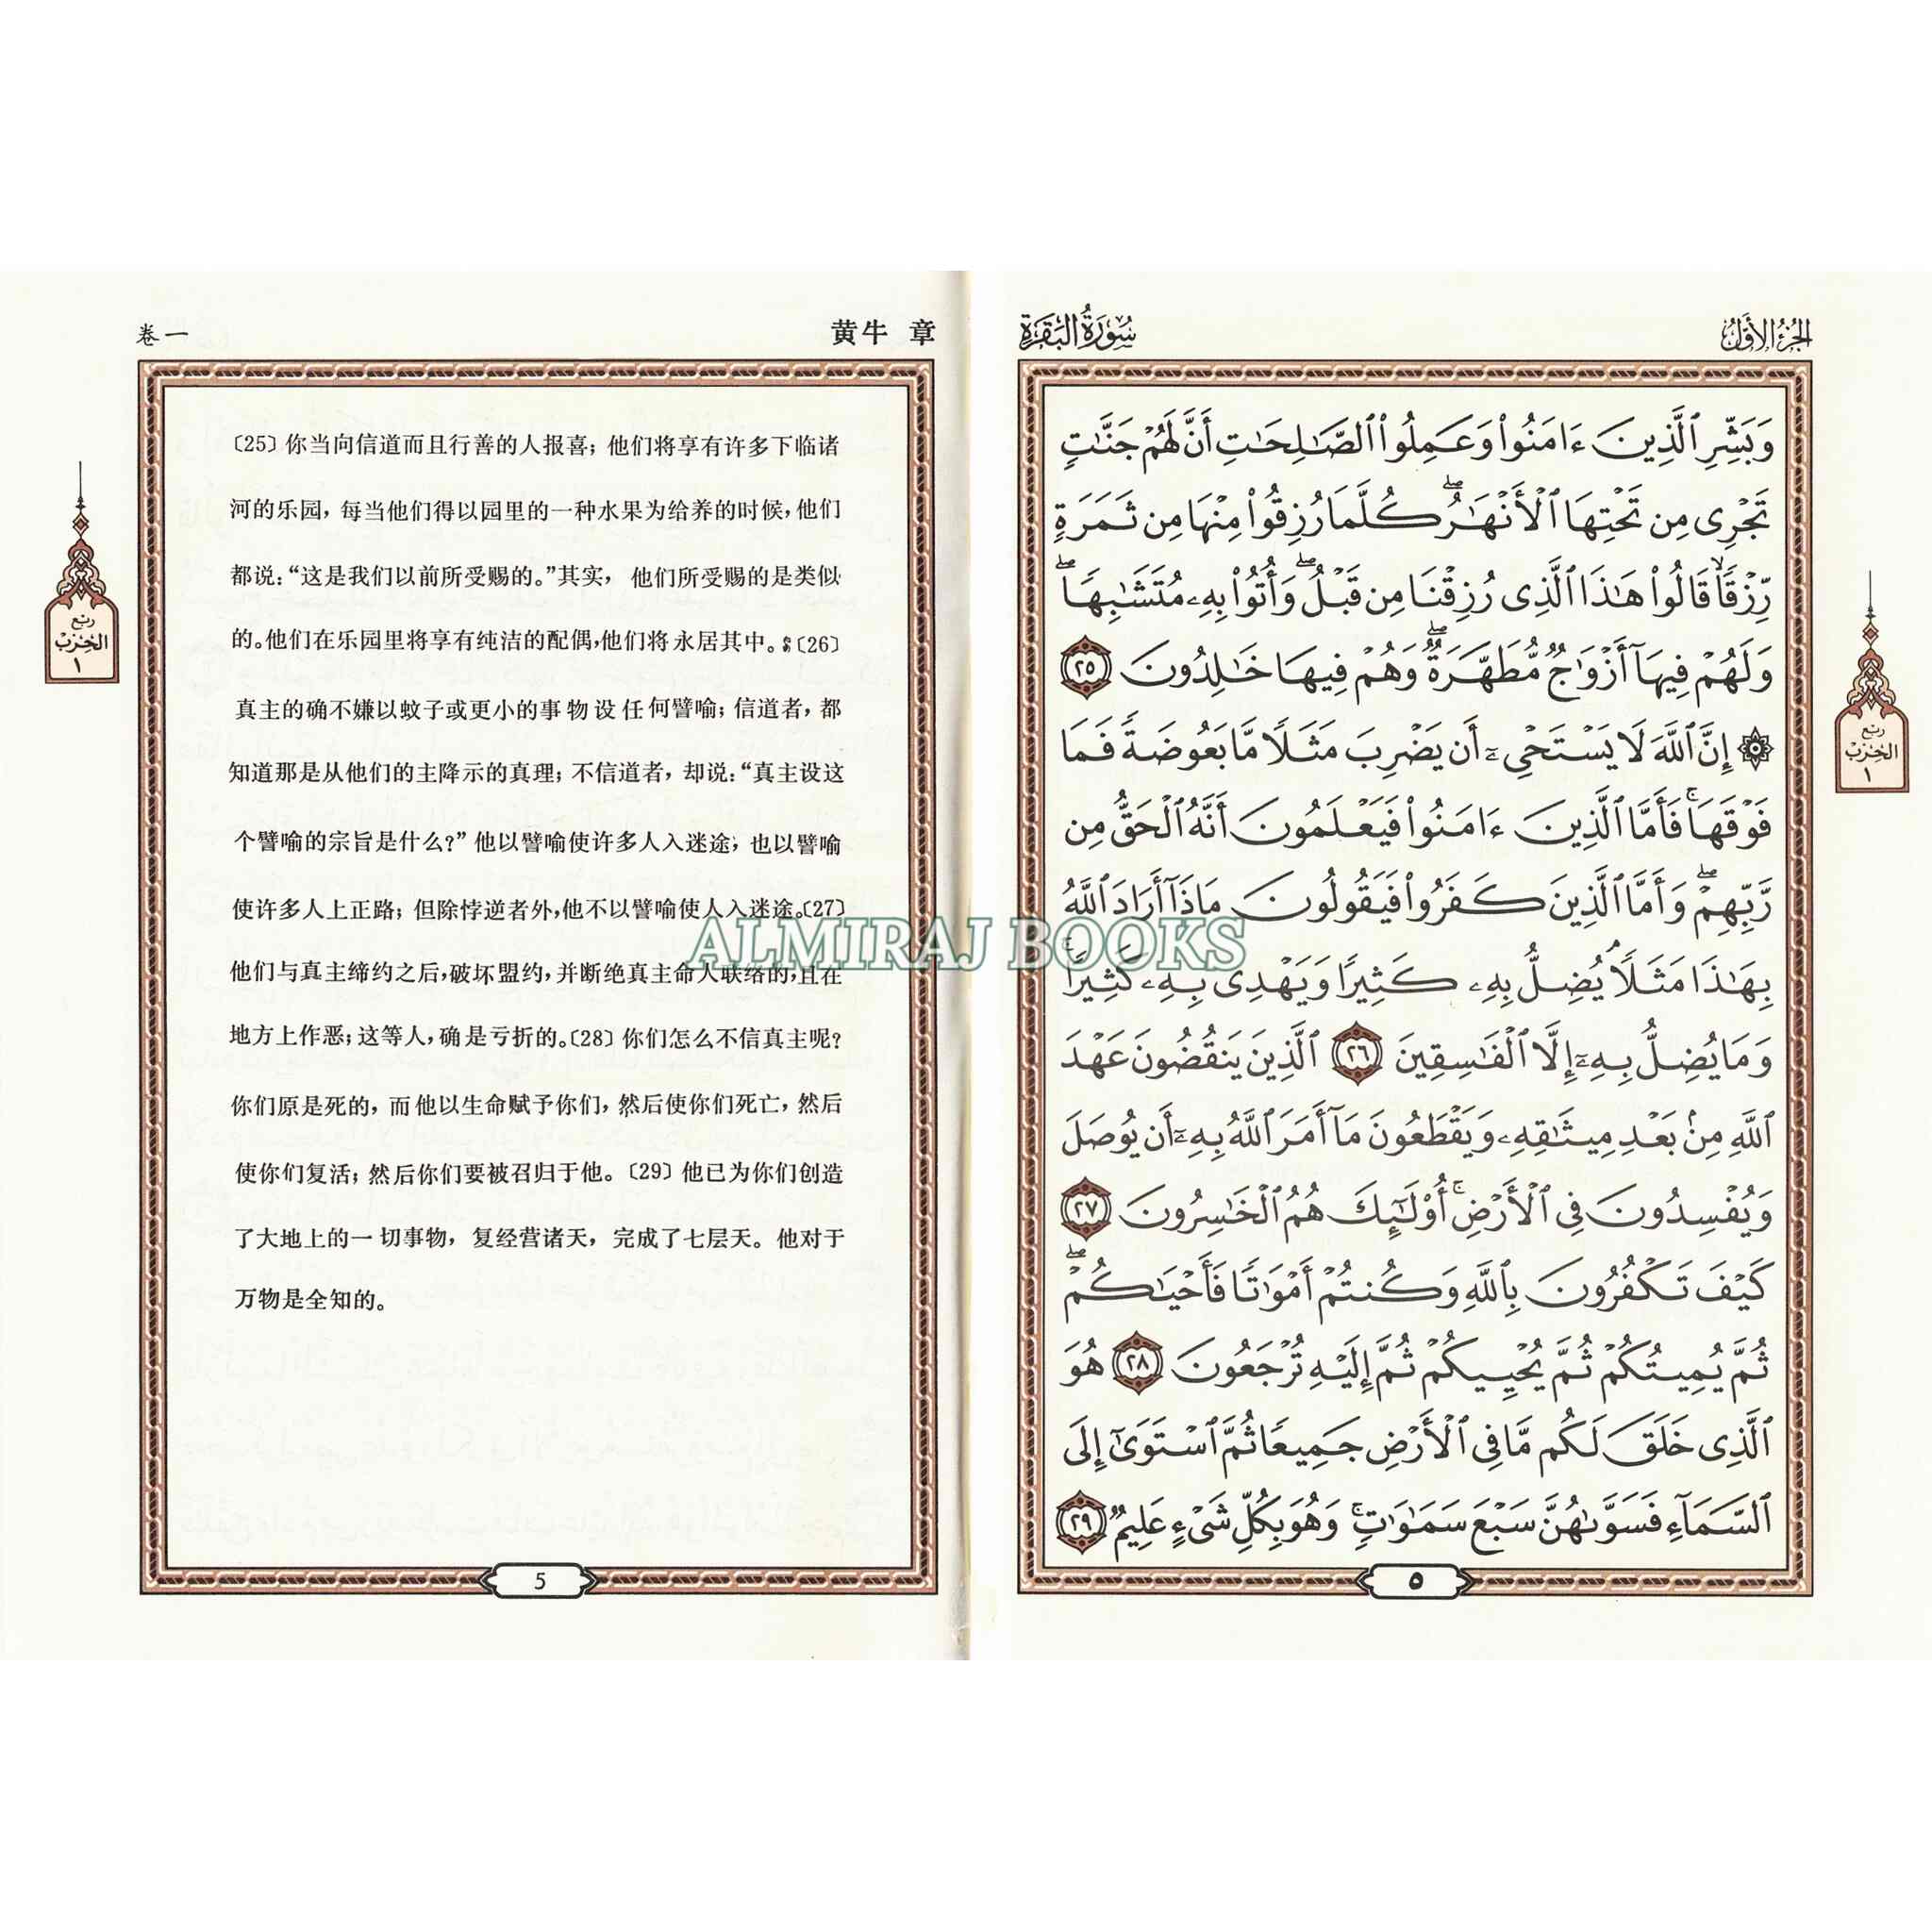 卷一
黄牛 章
〔25〕你当向信道而且行善的人报喜；他们将享有许多下临诸
河的乐园，每当他们得以园里的一种水果为给养的时候，他们
都说：“这是我们以前所受赐的。”其实， 他们所受赐的是类似
的。他们在乐园里将享有纯洁的配偶，他们将永居其中。〔26〕
真主的确不嫌以蚊子或更小的事物设任何譬喻；信道者，都
知道那是从他们的主降示的真理；不信道者，却说：“真主设这
个譬喻的宗旨是什么？”他以譬喻使许多人入迷途，也以譬喻
使许多人上正路；但除悖逆者外，他不以譬喻使人入迷途。〔27〕
他们与真主缔约之后，破坏盟约，并断绝真主命人联络的，且在
地方上作恶；这等人，确是亏折的。〔28〕你们怎么不信真主呢？
你们原是死的，而他以生命赋予你们，然后使你们死亡，然后
使你们复活；然后你们要被召归于他。〔29〕他已为你们创造
了大地上的一切事物，复经营诸天，完成了七层天。他对于
万物是全知的。
5
ربع
الحزب
١
الجزء الأول
سورة البقرة
وَبَشِّرِ ٱلَّذِينَ ءَامَنُوا۟ وَعَمِلُوا۟ ٱلصَّٰلِحَٰتِ أَنَّ لَهُمْ جَنَّٰتٍ
تَجْرِى مِن تَحْتِهَا ٱلْأَنْهَٰرُ ۖ كُلَّمَا رُزِقُوا۟ مِنْهَا مِن ثَمَرَةٍ
رِّزْقًا ۙ قَالُوا۟ هَٰذَا ٱلَّذِى رُزِقْنَا مِن قَبْلُ ۖ وَأُتُوا۟ بِهِۦ مُتَشَٰبِهًا ۖ
وَلَهُمْ فِيهَآ أَزْوَٰجٌ مُّطَهَّرَةٌ ۖ وَهُمْ فِيهَا خَٰلِدُونَ ٢٥
۞ إِنَّ ٱللَّهَ لَا يَسْتَحْىِۦٓ أَن يَضْرِبَ مَثَلًا مَّا بَعُوضَةً فَمَا
فَوْقَهَا ۚ فَأَمَّا ٱلَّذِينَ ءَامَنُوا۟ فَيَعْلَمُونَ أَنَّهُ ٱلْحَقُّ مِن
رَّبِّهِمْ ۖ وَأَمَّا ٱلَّذِينَ كَفَرُوا۟ فَيَقُولُونَ مَاذَآ أَرَادَ ٱللَّهُ
بِهَٰذَا مَثَلًا ۘ يُضِلُّ بِهِۦ كَثِيرًا وَيَهْدِى بِهِۦ كَثِيرًا ۚ
وَمَا يُضِلُّ بِهِۦٓ إِلَّا ٱلْفَٰسِقِينَ ٢٦ ٱلَّذِينَ يَنقُضُونَ عَهْدَ
ٱللَّهِ مِنۢ بَعْدِ مِيثَٰقِهِۦ وَيَقْطَعُونَ مَآ أَمَرَ ٱللَّهُ بِهِۦٓ أَن يُوصَلَ
وَيُفْسِدُونَ فِى ٱلْأَرْضِ ۚ أُو۟لَٰٓئِكَ هُمُ ٱلْخَٰسِرُونَ ٢٧
كَيْفَ تَكْفُرُونَ بِٱللَّهِ وَكُنتُمْ أَمْوَٰتًا فَأَحْيَٰكُمْ ۖ
ثُمَّ يُمِيتُكُمْ ثُمَّ يُحْيِيكُمْ ثُمَّ إِلَيْهِ تُرْجَعُونَ ٢٨ هُوَ
ٱلَّذِى خَلَقَ لَكُم مَّا فِى ٱلْأَرْضِ جَمِيعًا ثُمَّ ٱسْتَوَىٰٓ إِلَى
ٱلسَّمَآءِ فَسَوَّىٰهُنَّ سَبْعَ سَمَٰوَٰتٍ ۚ وَهُوَ بِكُلِّ شَىْءٍ عَلِيمٌ ٢٩
٥
ربع
الحزب
١
ALMIRAJ BOOKS